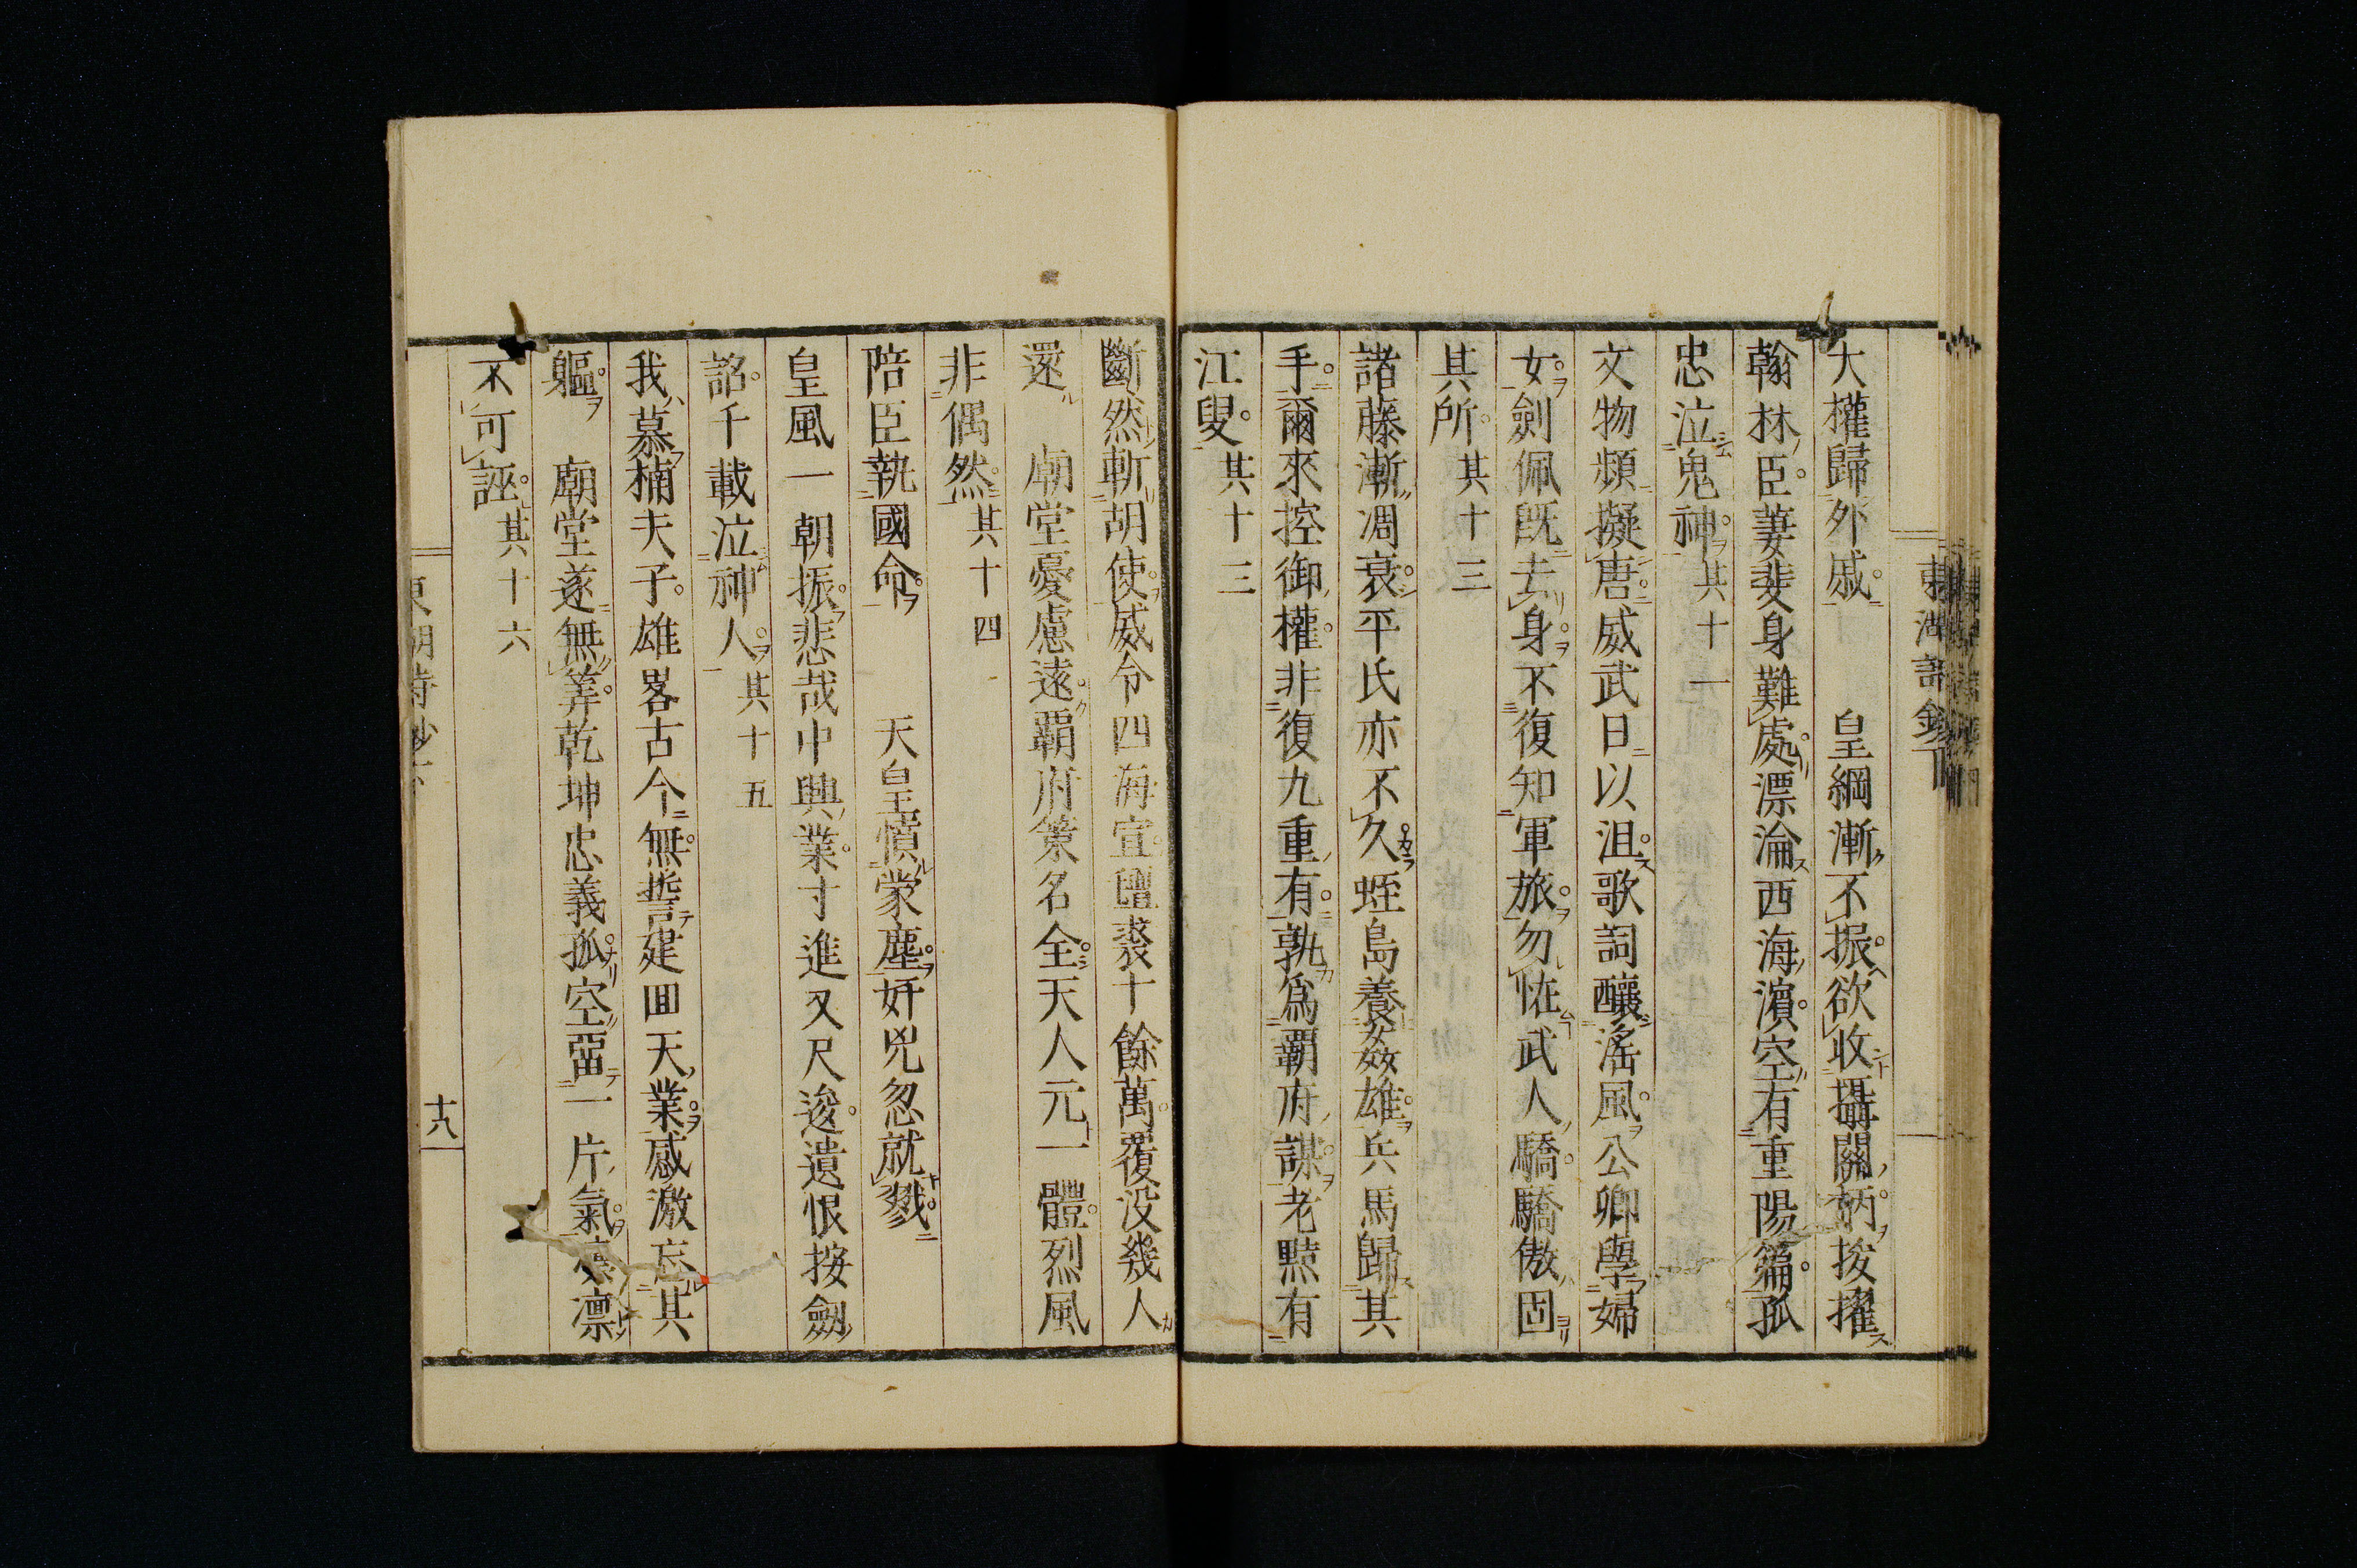 東湖詩鈔下
大權歸外戚　皇綱漸不振欲收攝關柄拔擢
翰林臣萋斐身難處漂淪西海濱空有重陽篇孤
忠泣鬼神其十一
文物頻擬唐威武日以沮歌詞釀滛風公卿學婦
女劍佩既去身不復知軍旅勿怪武人驕驕傲固
其所其十三
諸藤漸凋衰平氏亦不久蛭島養姦雄兵馬歸其
手爾來控御權非復九重有孰為覇府謀老黠有
江叟其十三
斷然斬胡使威令四海宣氊裘十餘萬覆没幾人
還　廟堂憂慮遠覇府策名全天人元一體烈風
非偶然其十四
陪臣執國命　天皇憤蒙塵奸兇忽就戮
皇風一朝振悲哉中興業寸進又尺逡遺恨按劔
詔千載泣神人其十五
我慕楠夫子雄畧古今無誓建回天業感激忘其
軀　廟堂遂無筭乾坤忠義孤空畱一片氣凛
不可誣其十六
十八